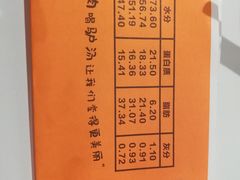 水分 蛋白质 脂肪 灰分
73.60 21.50 6.20 1.10
56.74 18.38 21.40 0.91
51.19 16.36 31.07 0.93
47.40 15.41 37.34 0.72
肉喝驴汤让我们变得更美丽"